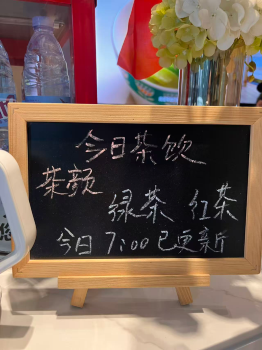 今日茶饮
茶颜
绿茶 红茶
今日 7:00 已更新